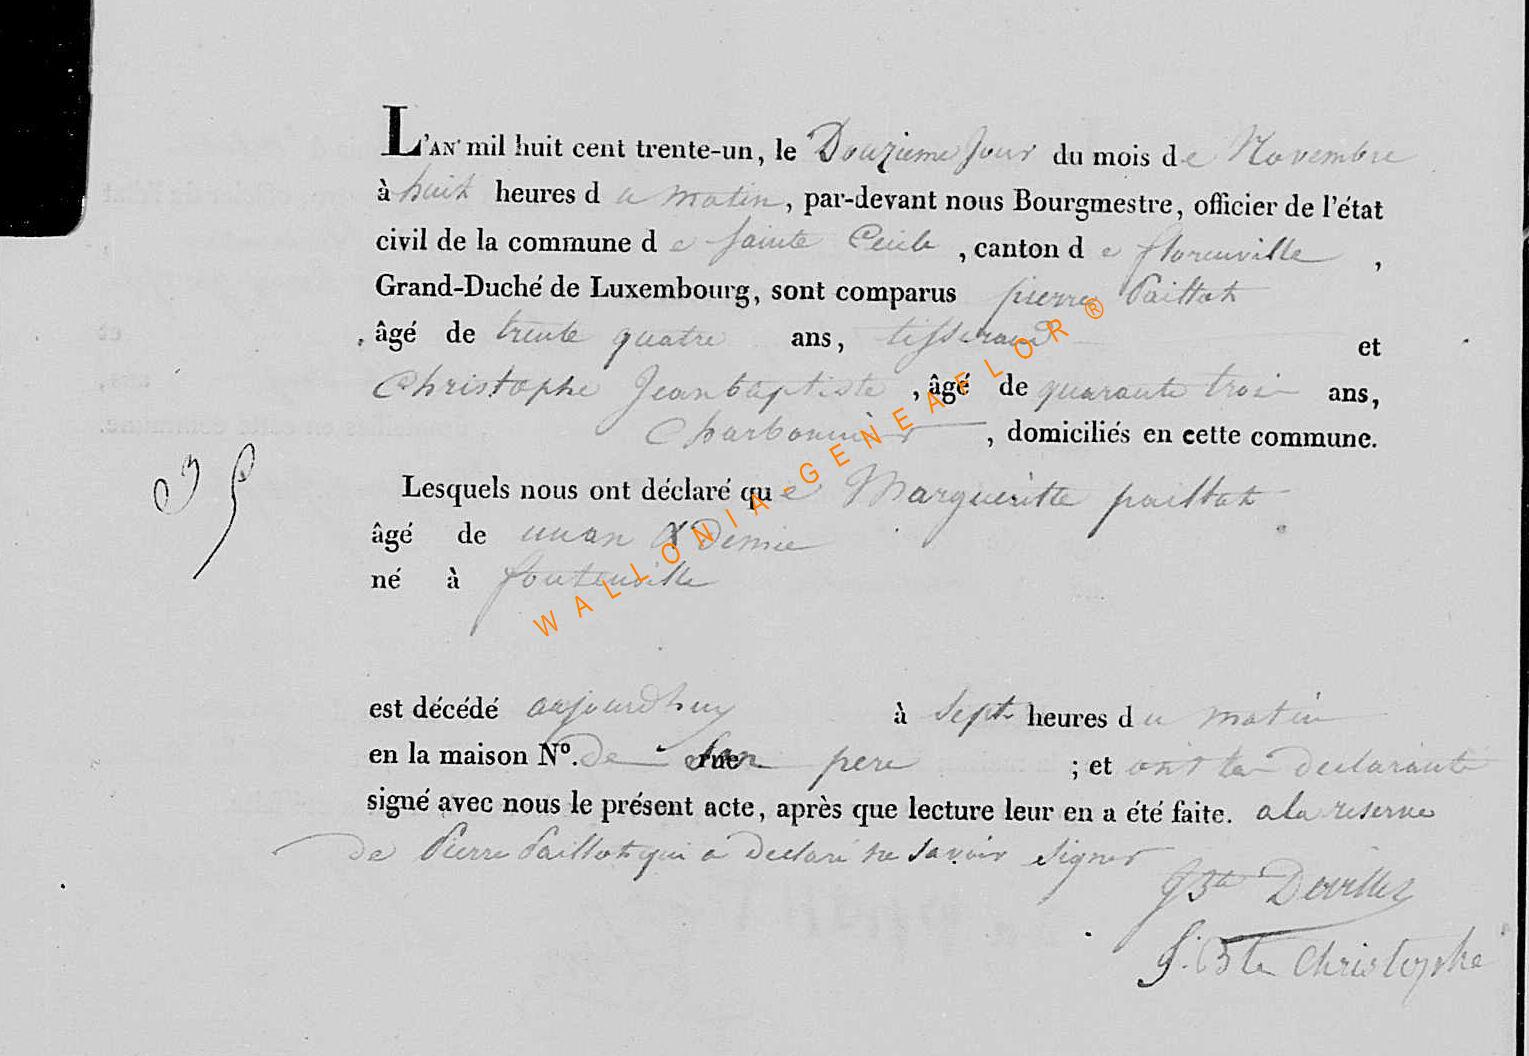 L'AN mil huit cent trente-un, le Douzieme Jour du mois de Novembre
à huit heures du matin, par-devant nous Bourgmestre, officier de l'état
civil de la commune de Sainte Cecile, canton de florenville,
Grand-Duché de Luxembourg, sont comparus pierre Paillot
âgé de trente quatre ans, tisserand et
Christophe Jeanbaptiste, âgé de quarante trois ans,
Charbonnier, domiciliés en cette commune.
Lesquels nous ont déclaré que Margueritte paillot
âgé de un an & Demie
né à fontenoille
est décédé aujourdhuy à Sept heures du matin
en la maison No. de rue Son pere; et ont les declarants
signé avec nous le présent acte, après que lecture leur en a été faite. a la reserve
de Pierre Paillot qui a declaré ne savoir signer
JBte Devillez
J. Bte Christophe
WALLONIA-GENEAFLOR®